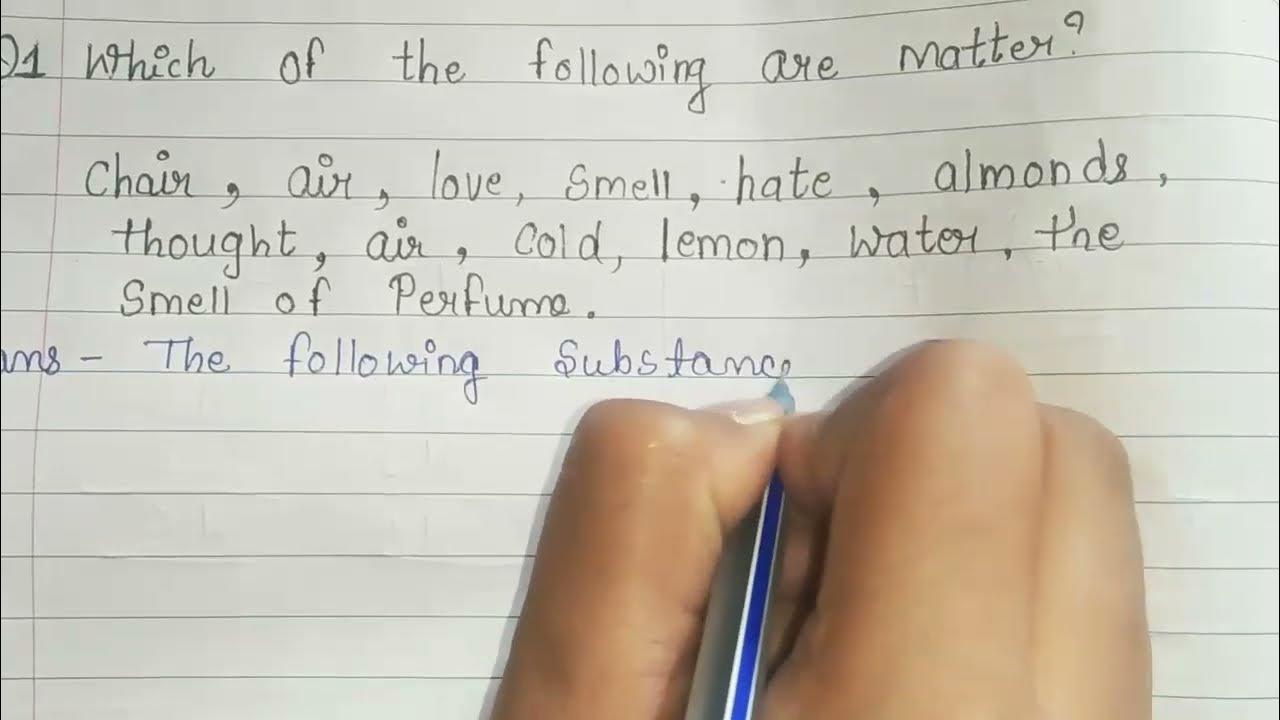 Q1 Which of the following are matter?
Chair, air, love, Smell, hate, almonds,
thought, air, Cold, lemon, water, the
Smell of Perfume.
ans - The following Substance